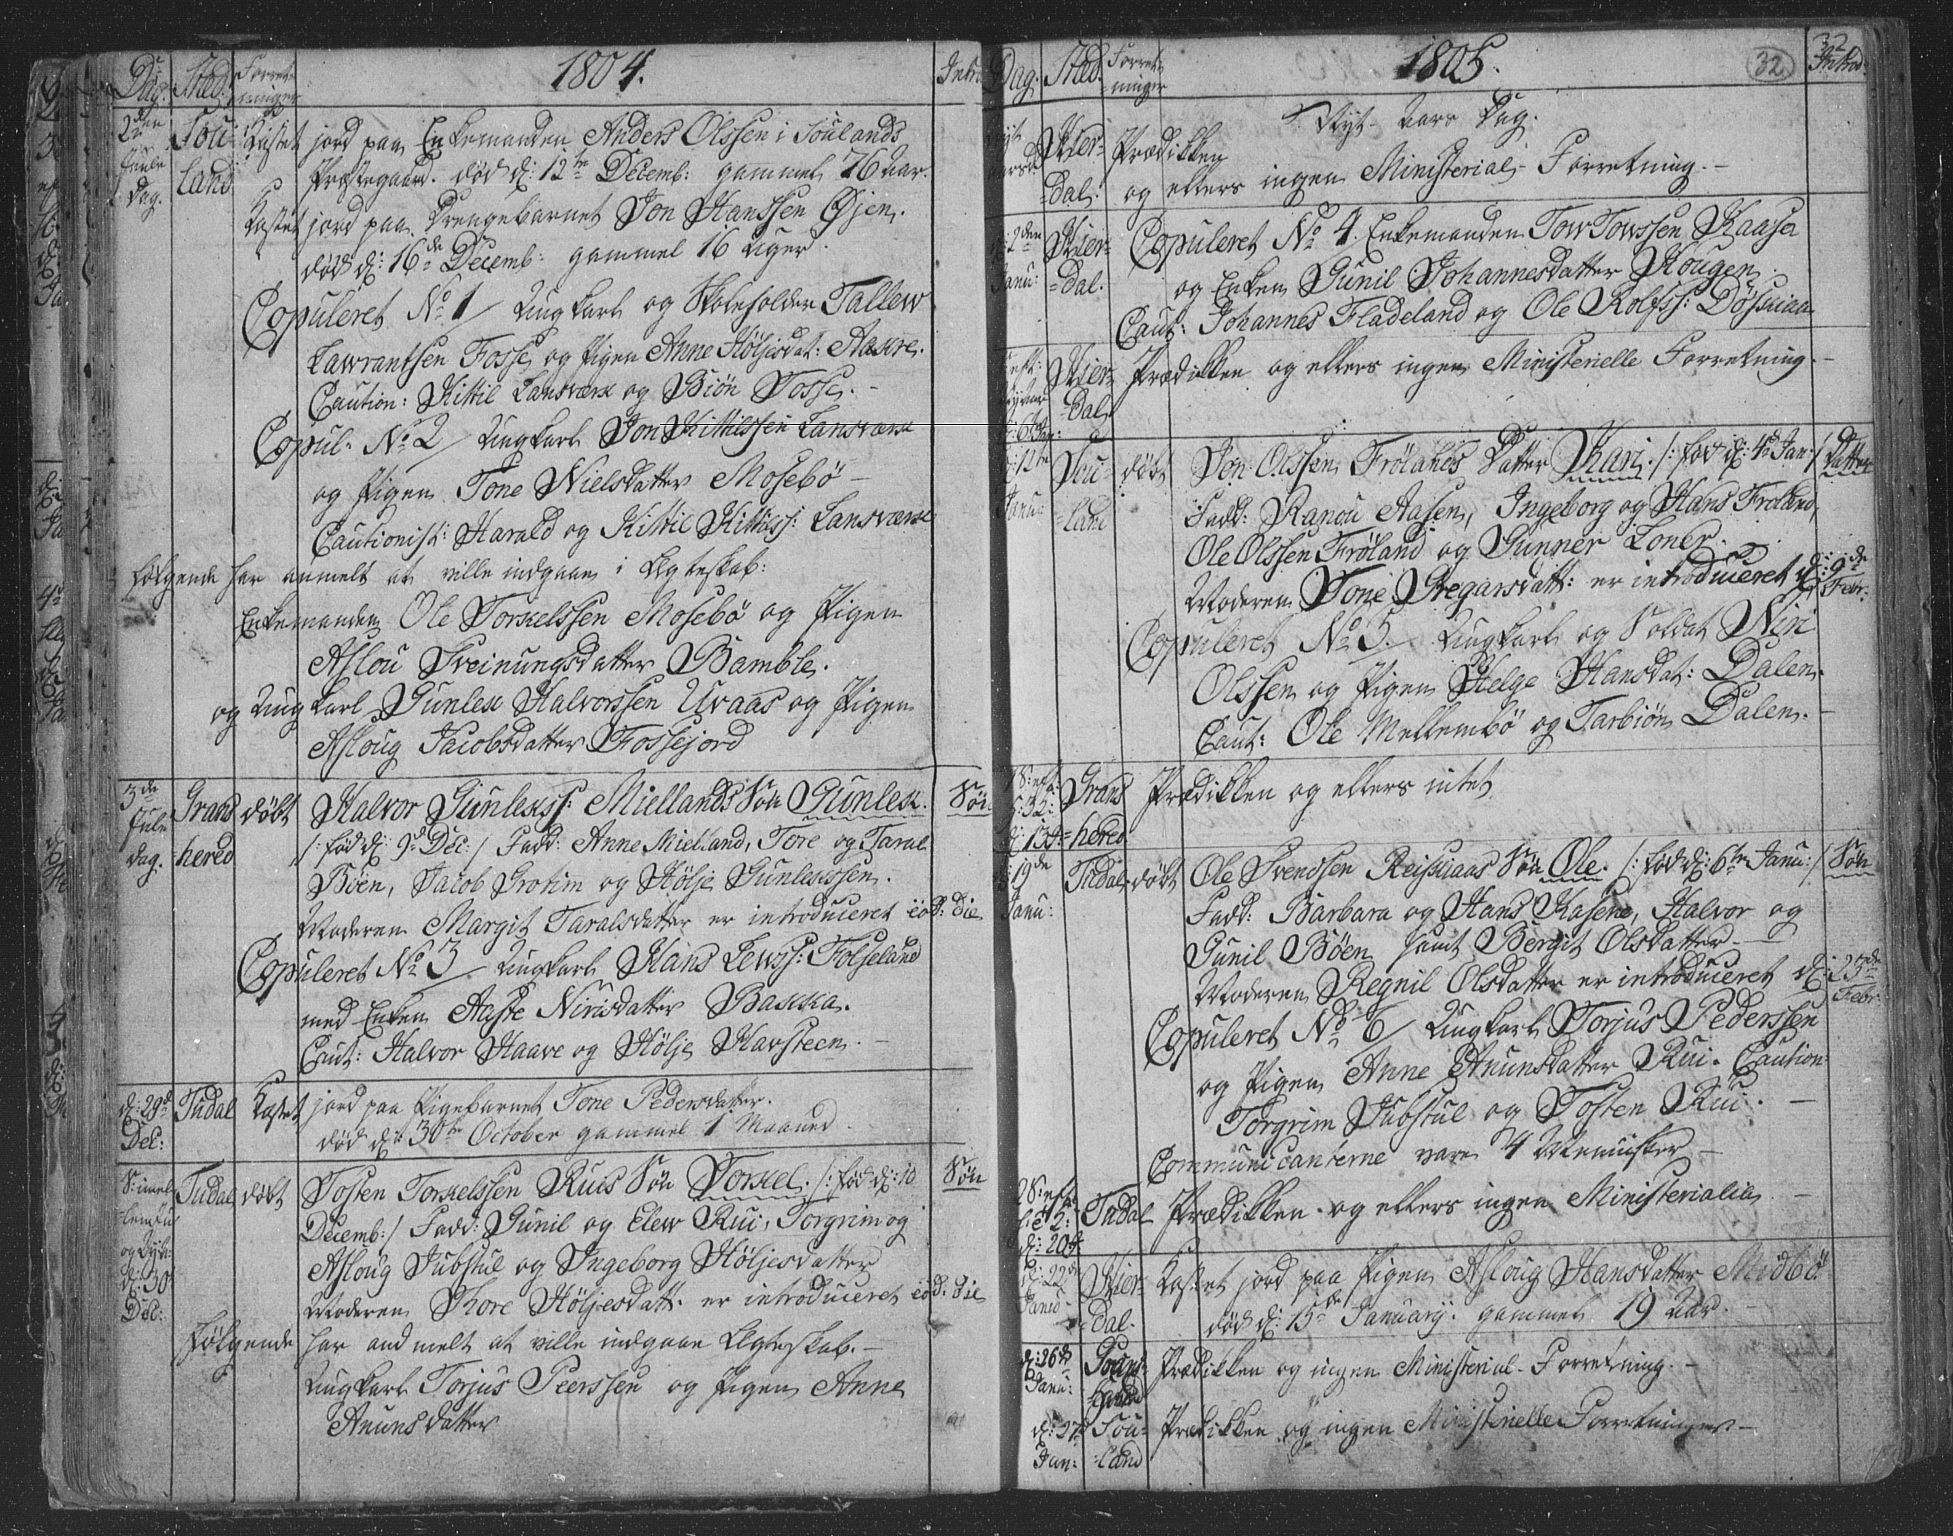 Dag. Sted. Forret-ninger 1804. Intr:
2den Juule Dag. Souland Kastet jord paa Enkemanden Anders Olssen i Soulands
Præstegaard. død d: 12te Decemb: gammel 76 Aar.
Kastet jord paa Drengebarnet Jon Hanssen Øjen.
død d: 16de Decemb: gammel 16 Uger.
Copuleret No 1 / Ungkarl og Skoleholder Tallew
Lawrantsen Fosse og Pigen Anne Høljesdat: Aakre.
Caution: Kittil Lansværk og Biøn Fosse. -
Copul: No 2 / Ungkarl Jon Kittilssen Lansværk
og Pigen Tone Nielsdatter Mosebø -
Cautionist: Harald og Kittil Kittilss: Lansværk
Følgende har anmelt at ville indgaae i Ægteskab:
Enkemanden Ole Torkelssen Mosebø og Pigen
Aslou Sveinungsdatter Bamble.
og Ungkarl Gunlek Halvorssen Uvaas og Pigen
Asloug Jacobsdatter Fossejord
3de Jule dag. Granshered døbt Halvor Gunlekss: Miellands Søn Gunlek. Søn
/: fød d: 9d Dec: / Fadd: Anne Mielland, Tore og Taral
Bøen, Jacob Grotim og Hølje Gunlekssen.
Moderen Margit Taralsdatter er introduceret eod: die
Copuleret No 3 / Ungkarl Hans Lewss: Folseland
med Enken Aaste Nirisdatter Bakka.
Caut: Halvor Haave og Hølje Havsteen. -
d: 29d Dec: Tudal Kastet jord paa Pigebarnet Tone Pedersdatter.
død d: 30te October gammel 1 Maaned.
S: imel-lem Juul og Nyt: d: 30 Dec: Tudal døbt Tosten Torkelssen Ruis Søn Torkel. /: fød d: 10 Søn
Decemb: / Fadd: Gunil og Elew Rui, Torgrim og
Asloug Jubstul og Ingeborg Høljesdatter
Moderen Thore Høljesdatt: er introduceret eod: die
Følgende har andmelt at ville indgaae Ægteskab. -
Ungkarl Torjus Peerssen og Pigen Anne
Anunsdatter
Dag. Sted. Forret-ninger 1805. 32 32 Introd:
Nyt- Aars Dag.
Hierdal. Prædiken
og ellers ingen Ministerial- Forretning. -
2den Janu: Hierdal. Copuleret No 4. Enkemanden Tow Towssen Kaasa
og Enken Gunil Johannesdatter Hougen.
Caut: Johannes Fladeland og Ole Rolfss:
Hierdal Prædiken og ellers ingen Ministerielle Forretning. -
12te Janu: Souland døbt Jon Olssen Frølands Datter Kari. /: fød d: 4d Jan: / Datter
Fadd: Ranou Aasen, Ingeborg og Hans Frøland,
Ole Olssen Frøland og Gunner Loner.
Moderen Tone Gregarsdatt: er introduceret d: 9de Febr:
Copuleret No 5. Ungkarl og Soldat Niri
Olssen og Pigen Helge Hansdat: Dalen.
Caut: Ole Mellembø og Tarbiøn Dalen. -
Granshered Prædiken og ellers intet
19de Janu: Tudal døbt Ole Svendssen Reisiaas Søn Ole. /: fød d: 6te Janu: / Søn
Fadd: Barbara og Hans Kasene, Halvor og
Gunil Bøen samt Bergit Olsdatter -
Moderen Regnil Olsdatter er introduceret d: 23de Febr:
Copuleret No 6 / Ungkarl Torjus Pederssen
og Pigen Anne Anunsdatter Rui. Caution:
Torgrim Jubstul og Tosten Rui. -
Communicanterne vare 4 Mennisker -
d: 20de Tudal Prædiken og ellers ingen Ministerialia -
d: 22de Janu: Hierdal. Kastet jord paa Pigen Asloug Hansdatter Midbø
død d: 15de Januarij. gammel 19 Aar.
d: 26de Janu: Prædiken og ingen Ministerial- Forretning. -
d: 27de Jan: Souland Prædiken og ingen Ministerielle Forretninger -